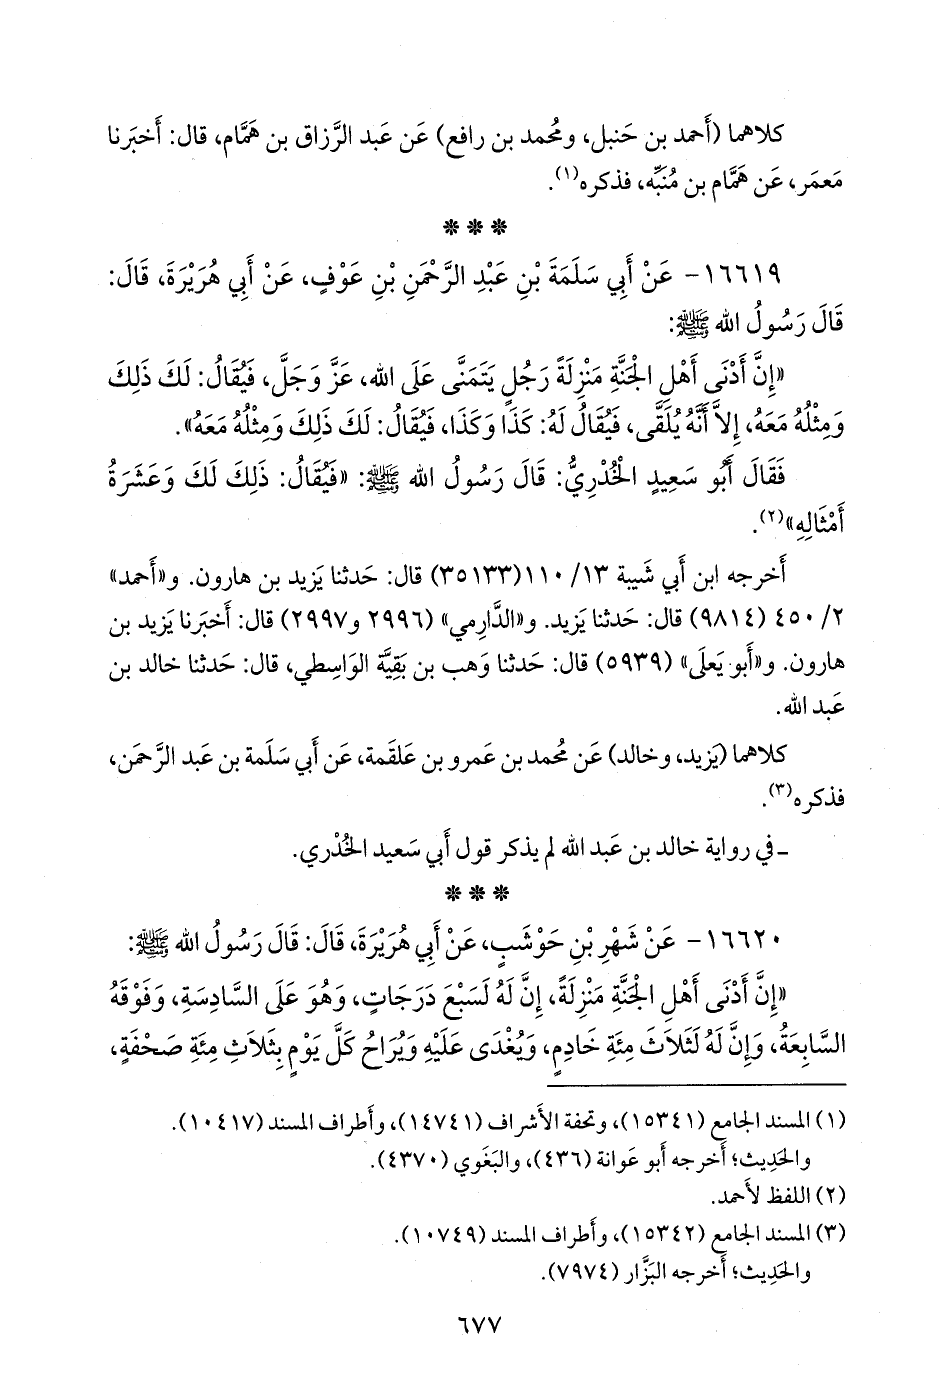 كلاهما (أَحمد بن حَنبل، ومُحمد بن رافع) عَن عبد الرَّزاق بن هَمَّام، قال: أَخبَرنا
مَعمَر، عَن هَمَّام بن مُنَبِّه، فذكره(١).
* * *
١٦٦١٩- عَنْ أَبِي سَلَمَةَ بْنِ عَبْدِ الرَّحْمَنِ بْنِ عَوْفٍ، عَنْ أَبِي هُرَيْرَةَ، قَالَ:
قَالَ رَسُولُ الله ﷺ:
«إِنَّ أَدْنَى أَهْلِ الْجَنَّةِ مَنْزِلَةً رَجُلٍ يَتَمَنَّى عَلَى الله، عَزَّ وَجَلَّ، فَيُقَالُ: لَكَ ذَلِكَ
وَمِثْلُهُ مَعَهُ، إِلاَّ أَنَّهُ يُلَقَّى، فَيُقَالُ لَهُ: كَذَا وَكَذَا، فَيُقَالُ: لَكَ ذَلِكَ وَمِثْلُهُ مَعَهُ».
فَقَالَ أَبُو سَعِيدٍ الْخُدْرِيُّ: قَالَ رَسُولُ الله ﷺ: «فَيُقَالُ: ذَلِكَ لَكَ وَعَشَرَةُ
أَمْثَالِهِ»(٢).
أَخرجه ابن أَبي شَيبة ١٣/ ١١٠(٣٥١٣٣) قال: حَدثنا يَزيد بن هارون. و«أَحمد»
٢/ ٤٥٠ (٩٨١٤) قال: حَدثنا يَزيد. و«الدَّارِمي» (٢٩٩٦ و٢٩٩٧) قال: أَخبَرنا يَزيد بن
هارون. و«أَبو يَعلَى» (٥٩٣٩) قال: حَدثنا وَهب بن بَقِيَّة الوَاسِطي، قال: حَدثنا خالد بن
عَبد الله.
كلاهما (يَزيد، وخالد) عَن مُحمد بن عَمرو بن عَلقَمة، عَن أَبي سَلَمة بن عَبد الرَّحمَن،
فذكره(٣).
ـ في رواية خالد بن عَبد الله لم يذكر قول أَبي سَعيد الخُدْري.
* * *
١٦٦٢٠- عَنْ شَهْرِ بْنِ حَوْشَبٍ، عَنْ أَبِي هُرَيْرَةَ، قَالَ: قَالَ رَسُولُ الله ﷺ:
«إِنَّ أَدْنَى أَهْلِ الْجَنَّةِ مَنْزِلَةً، إِنَّ لَهُ لَسَبْعَ دَرَجَاتٍ، وَهُوَ عَلَى السَّادِسَةِ، وَفَوْقَهُ
السَّابِعَةُ، وَإِنَّ لَهُ لَثَلاَثَ مِئَةِ خَادِمٍ، وَيُغْدَى عَلَيْهِ وَيُرَاحُ كُلَّ يَوْمٍ بِثَلاَثِ مِئَةِ صَحْفَةٍ،
(١) المسند الجامع (١٥٣٤١)، وتحفة الأَشراف (١٤٧٤١)، وأَطراف المسند (١٠٤١٧).
والحَدِيث؛ أَخرجه أَبو عَوانة (٤٣٦)، والبَغَوي (٤٣٧٠).
(٢) اللفظ لأَحمد.
(٣) المسند الجامع (١٥٣٤٢)، وأَطراف المسند (١٠٧٤٩).
والحَدِيث؛ أَخرجه البَزَّار (٧٩٧٤).
٦٧٧